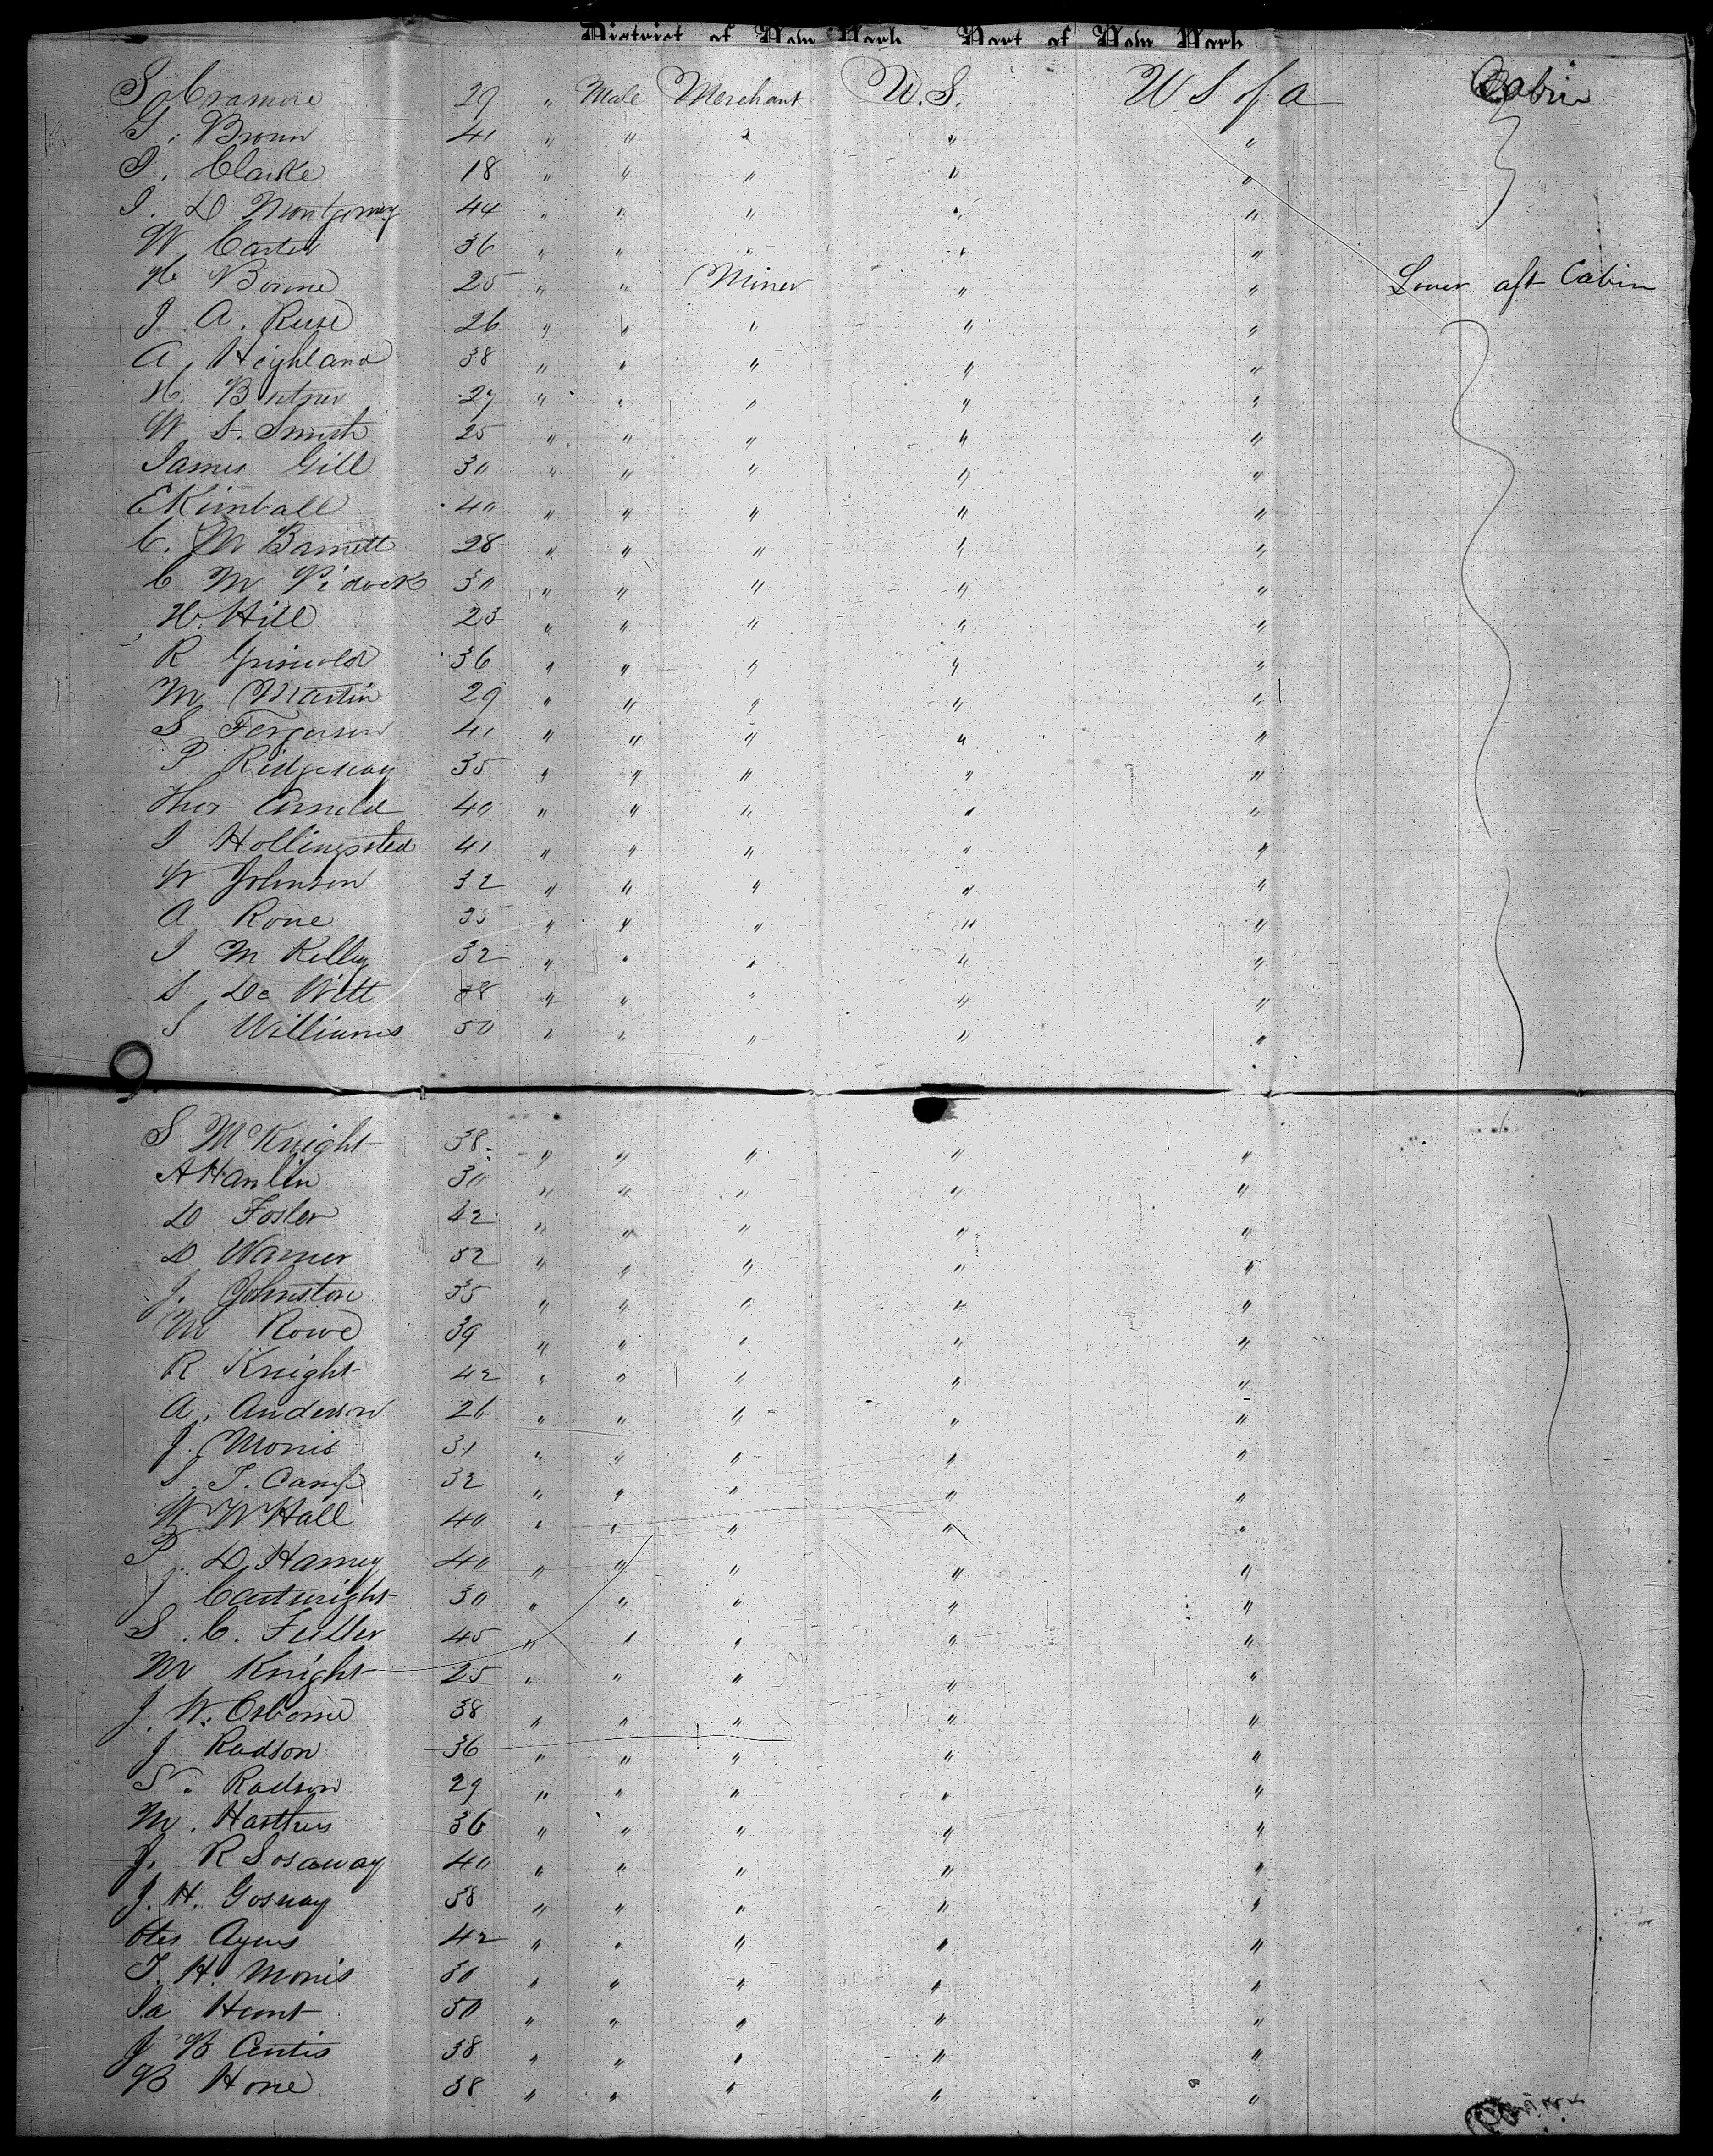 District of New York Port of New York
S Cramore 29 " Male Merchant U.S. U S of A Cabin
G. Brown 41 " " " " "
J. Clarke 18 " " " " "
J. D Montgomery 44 " " " " "
W Carter 36 " " " " "
H Borne 25 " " Miner " " Lower aft Cabin
J. A. Ruse 26 " " " " "
A Highland 38 " " " " "
H. Butner 27 " " " " "
W S. Smith 25 " " " " "
James Gill 30 " " " " "
E Kimball 40 " " " " "
C. M Barnett 28 " " " " "
C M Pidock 30 " " " " "
H. Hill 23 " " " " "
R Griswold 36 " " " " "
M Martin 29 " " " " "
S Ferguson 41 " " " " "
P Ridgeway 35 " " " " "
Thos Arnold 40 " " " " "
J Hollingsted 41 " " " " "
W Johnson 32 " " " " "
A Rone 35 " " " " "
J M Kelley 32 " " " " "
S De Witt 38 " " " " "
S Williams 50 " " " " "
S McKnight 38 " " " " "
A Hanlin 30 " " " " "
D Foster 42 " " " " "
D Warner 52 " " " " "
J. Johnston 35 " " " " "
M Rowe 39 " " " " "
R Knight 42 " " " " "
A. Anderson 26 " " " " "
J. Morris 31 " " " " "
S. T. Camp 32 " " " " "
W. W Hall 40 " " " " "
P. D. Harney 40 " " " " "
J Cartwright 30 " " " " "
S. C. Fuller 45 " " " " "
M Knight 25 " " " " "
J. W. Osborne 38 " " " " "
J Radson 36 " " " " "
S. Radson 29 " " " " "
M. Harthus 36 " " " " "
J. R Sosaway 40 " " " " "
J. H. Gosway 38 " " " " "
Otes Ayres 42 " " " " "
T. H. Morris 30 " " " " "
Ja Hunt 50 " " " " "
J B Centis 38 " " " " "
B Hone 38 " " " " "